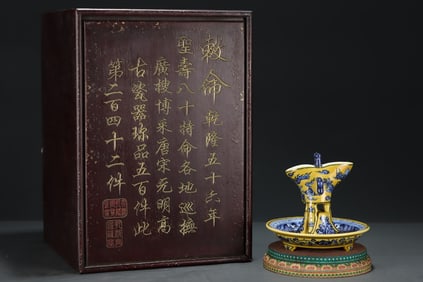 敕命乾隆五十六年
聖壽八十特命各地巡撫
廣搜博采唐宋元明高
古瓷器珍品五百件此
第二百四十二件